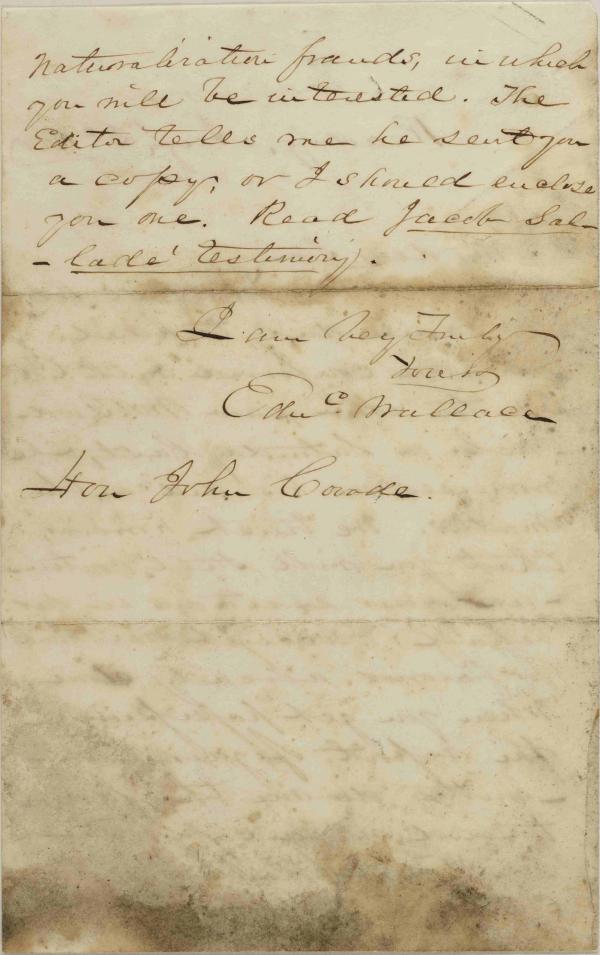 Naturalization frauds, in which
you will be interested. The
Editor tells me he sent you
a copy, or I should enclose
you one. Read Jacob Sal-
- lade' testimony.
I am Very Truly
Yours
Edwd. Wallace
Hon John Covode.